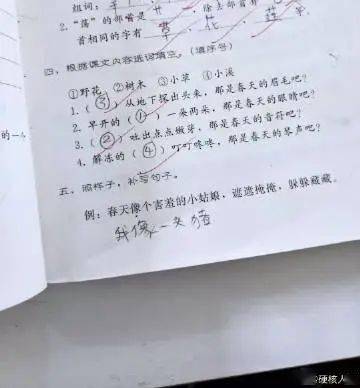 组词:
2."荡"的部首是 艹 除去部首
首相同的字有 草 花 莲 等。
四、根据课文内容选词填空。(填序号)
①野花 ②树木 ③小草 ④小溪
1.(③)从地下探出头来,那是春天的眉毛吧?
2.早开的(①)一朵两朵,那是春天的眼睛吧?
3.(②)吐出点点嫩芽,那是春天的音符吧?
4.解冻的(④)叮叮咚咚,那是春天的琴声吧?
的一
五、照样子,补写句子。
例:春天像个害羞的小姑娘,遮遮掩掩,躲躲藏藏。
我像一头猪
硬核人